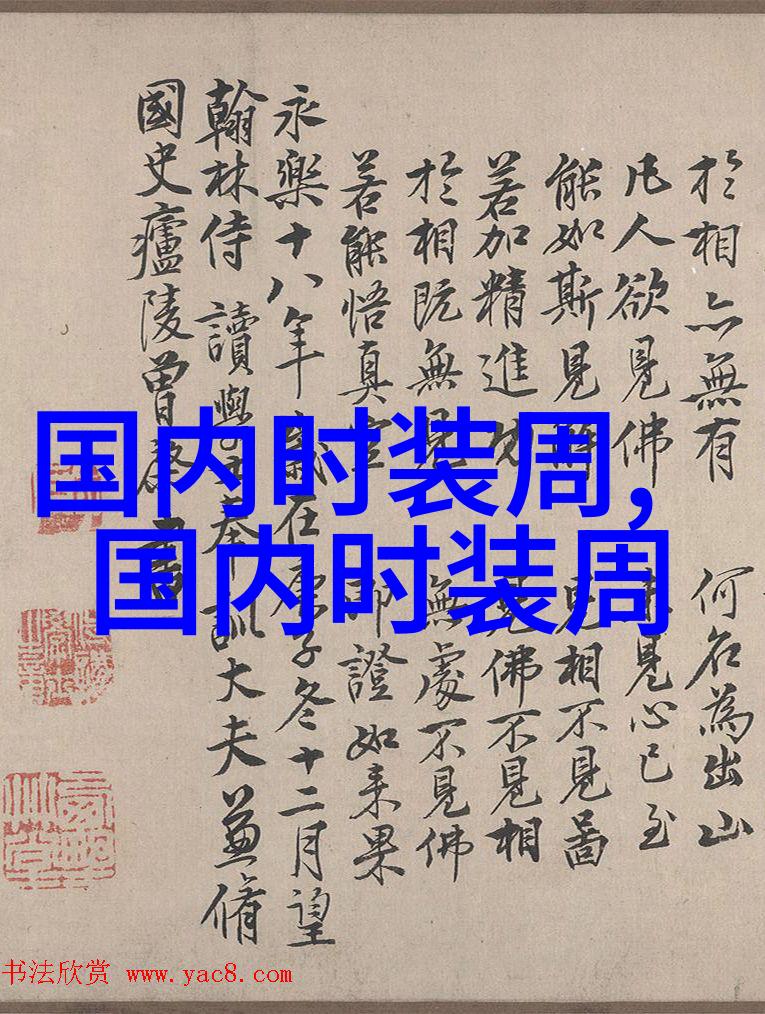 於相亦無有 何名為出山
凡人欲見佛 見心已至
能如斯見解 見相不見啚
若加精進 見佛不見相
於相既無見 無處不見佛
若能悟真空 即證如来果
永樂十八年歲在庚子冬十二月望
翰林侍讀學士奉訓大夫兼脩
國史廬陵曾棨書
国内时装周,
国内时装周
书法欣赏 www.yac8.com